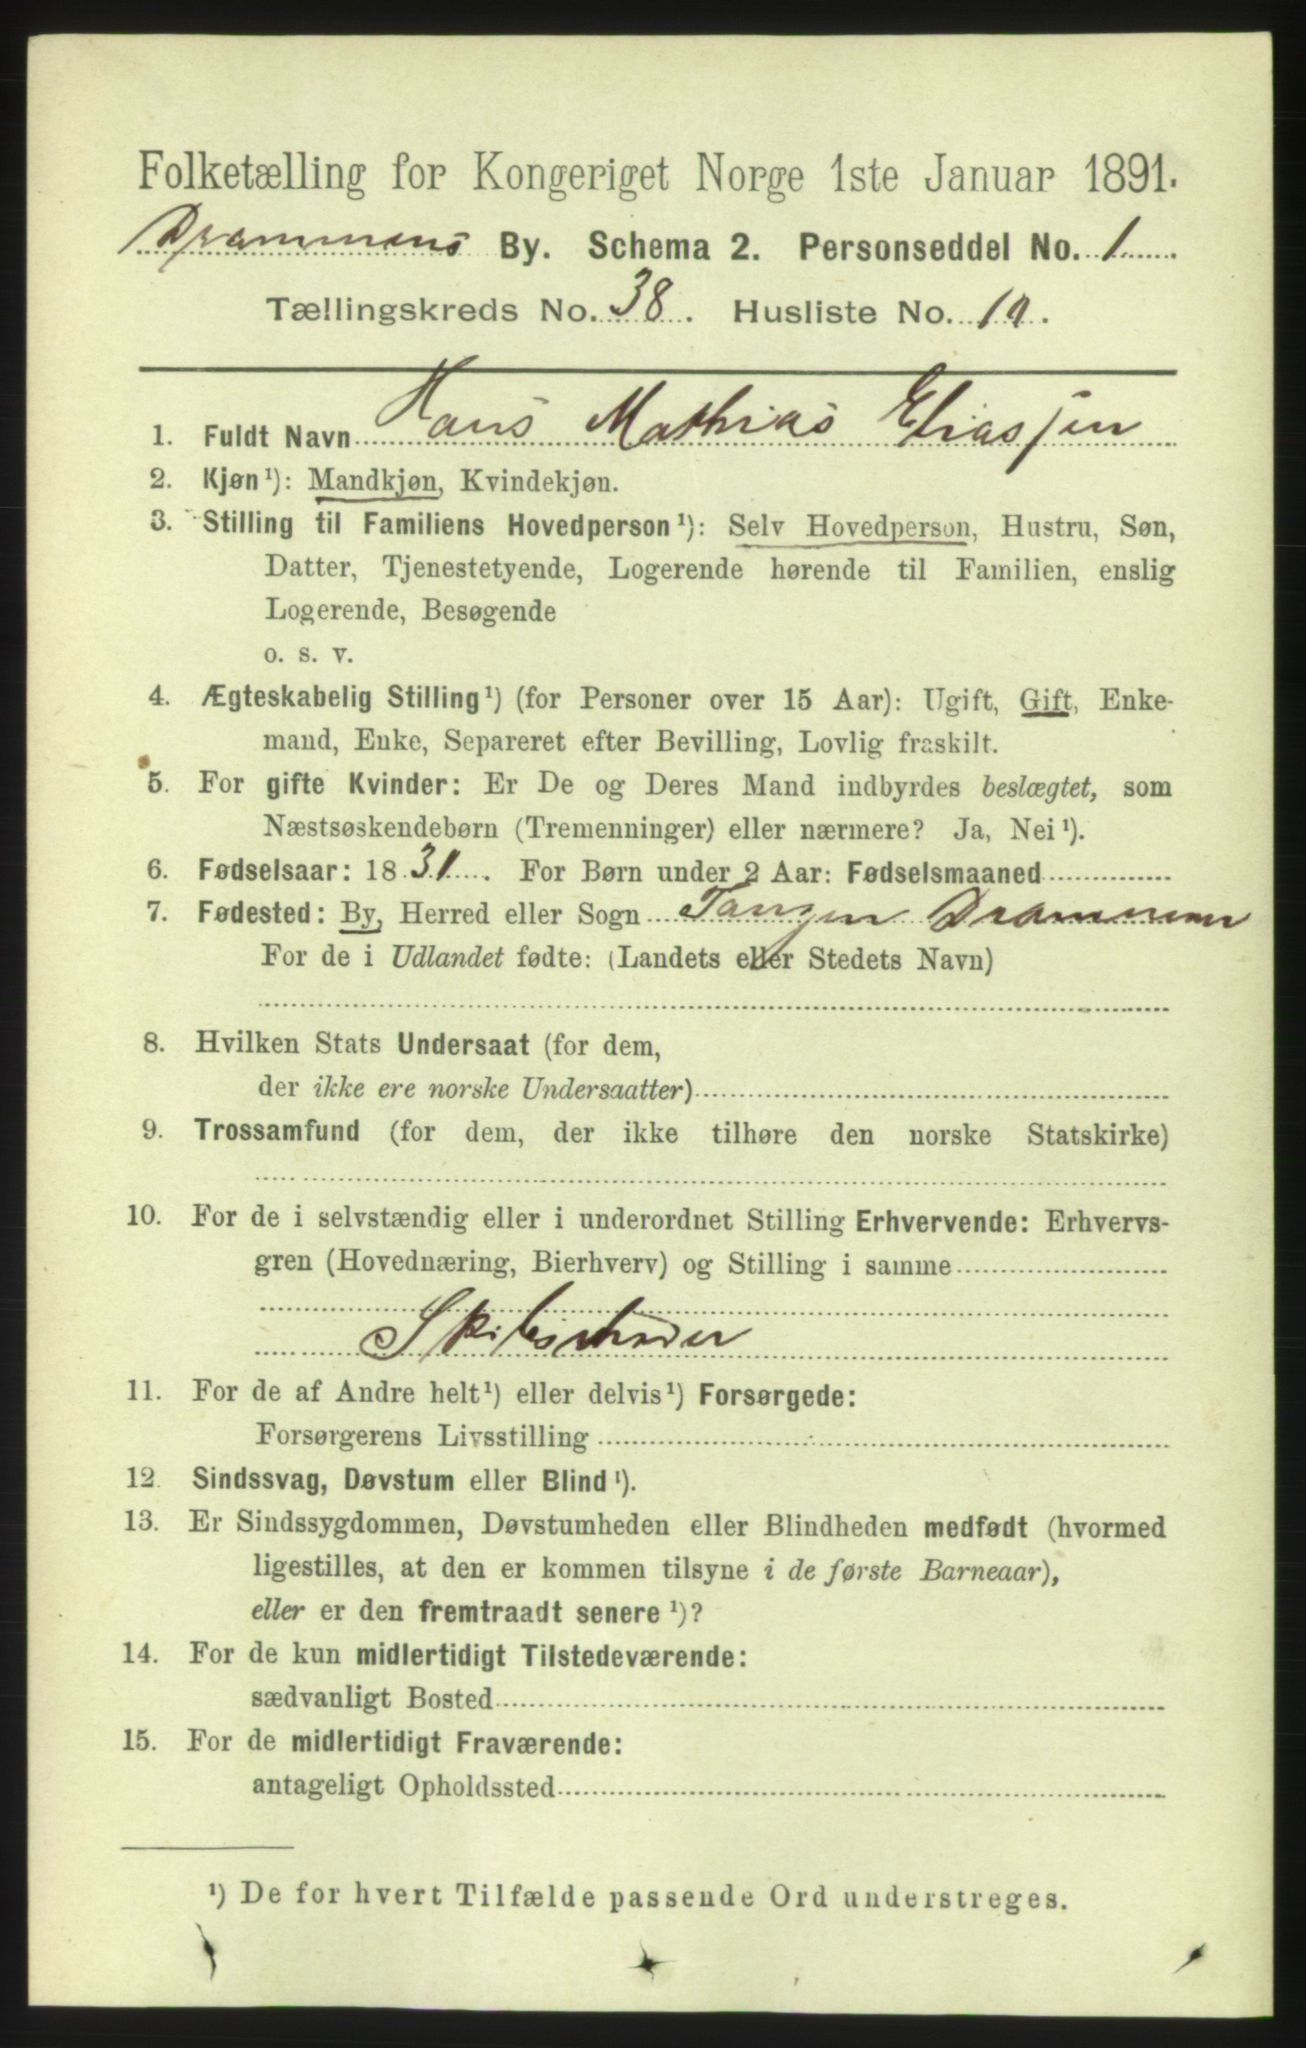 Folketælling for Kongeriget Norge 1ste Januar 1891.
Drammens By. Schema 2. Personseddel No. 1
Tællingskreds No. 38. Husliste No. 10.
1. Fuldt Navn Hans Mathias Eliassen
2. Kjøn ¹): Mandkjøn, Kvindekjøn.
3. Stilling til Familiens Hovedperson ¹): Selv Hovedperson, Hustru, Søn,
Datter, Tjenestetyende, Logerende hørende til Familien, enslig
Logerende, Besøgende
o. s. v.
4. Ægteskabelig Stilling ¹) (for Personer over 15 Aar): Ugift, Gift, Enke-
mand, Enke, Separeret efter Bevilling, Lovlig fraskilt.
5. For gifte Kvinder: Er De og Deres Mand indbyrdes beslægtet, som
Næstsøskendebørn (Tremenninger) eller nærmere? Ja, Nei ¹).
6. Fødselsaar: 1831. For Børn under 2 Aar: Fødselsmaaned
7. Fødested: By, Herred eller Sogn Tangen Drammen
For de i Udlandet fødte: (Landets eller Stedets Navn)
8. Hvilken Stats Undersaat (for dem,
der ikke ere norske Undersaatter)
9. Trossamfund (for dem, der ikke tilhøre den norske Statskirke)
10. For de i selvstændig eller i underordnet Stilling Erhvervende: Erhvervs-
gren (Hovednæring, Bierhverv) og Stilling i samme
11. For de af Andre helt ¹) eller delvis ¹) Forsørgede:
Forsørgerens Livsstilling
12. Sindssvag, Døvstum eller Blind ¹).
13. Er Sindssygdommen, Døvstumheden eller Blindheden medfødt (hvormed
ligestilles, at den er kommen tilsyne i de første Barneaar),
eller er den fremtraadt senere ¹)?
14. For de kun midlertidigt Tilstedeværende:
sædvanligt Bosted
15. For de midlertidigt Fraværende:
antageligt Opholdssted
¹) De for hvert Tilfælde passende Ord understreges.